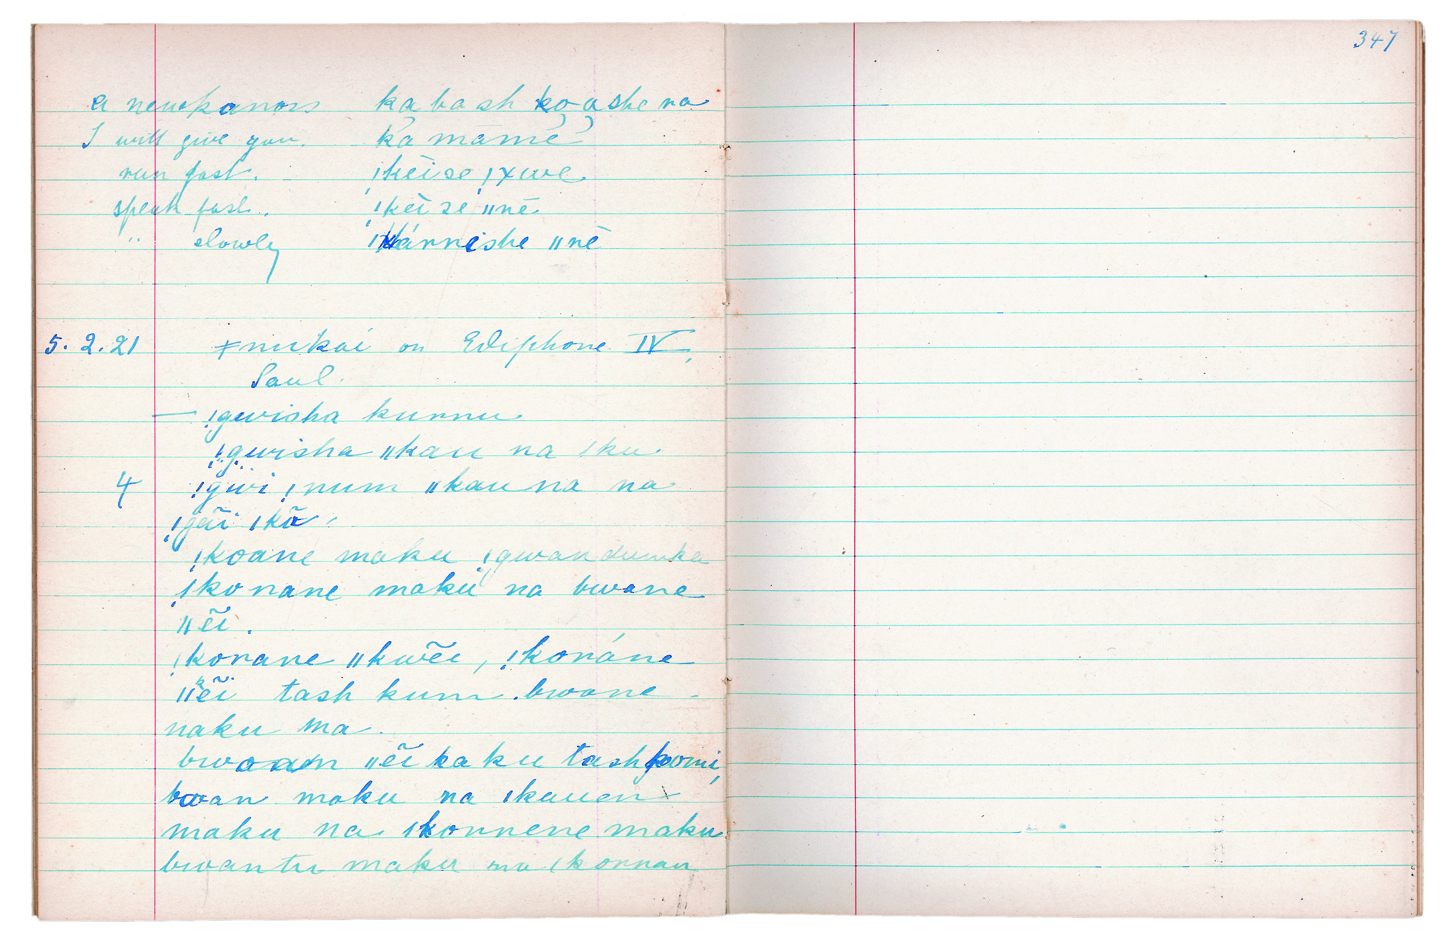 347
a new kaross kabash ko ashe na
I will give you. ka mamē
run fast. ǃkēise ǃxwe
speak fast. ǃkēi se ǁnē
" slowly ǃkánnishe ǁnē
5.2.21 ǂnukai on Ediphone IV,
Saul.
— ǃgwisha kunnu
ǃgwisha ǁkau na ǀku.
4 ǃgwi ǃnum ǁkau na na
ǃgãi ǀkã,
ǃkoane maku ǃgwandumka
ǃkonane maku na bwane
ǁẽi.
ǃkonane ǁkwẽi, ǃkonáne
ǁẽi tash kum bwane
naku ma.
bwoaan ǁẽi ka ku tash
bwan maku na ǀkauen
maku na ǀkonnene maku
bwantu maku na ǀkonnan